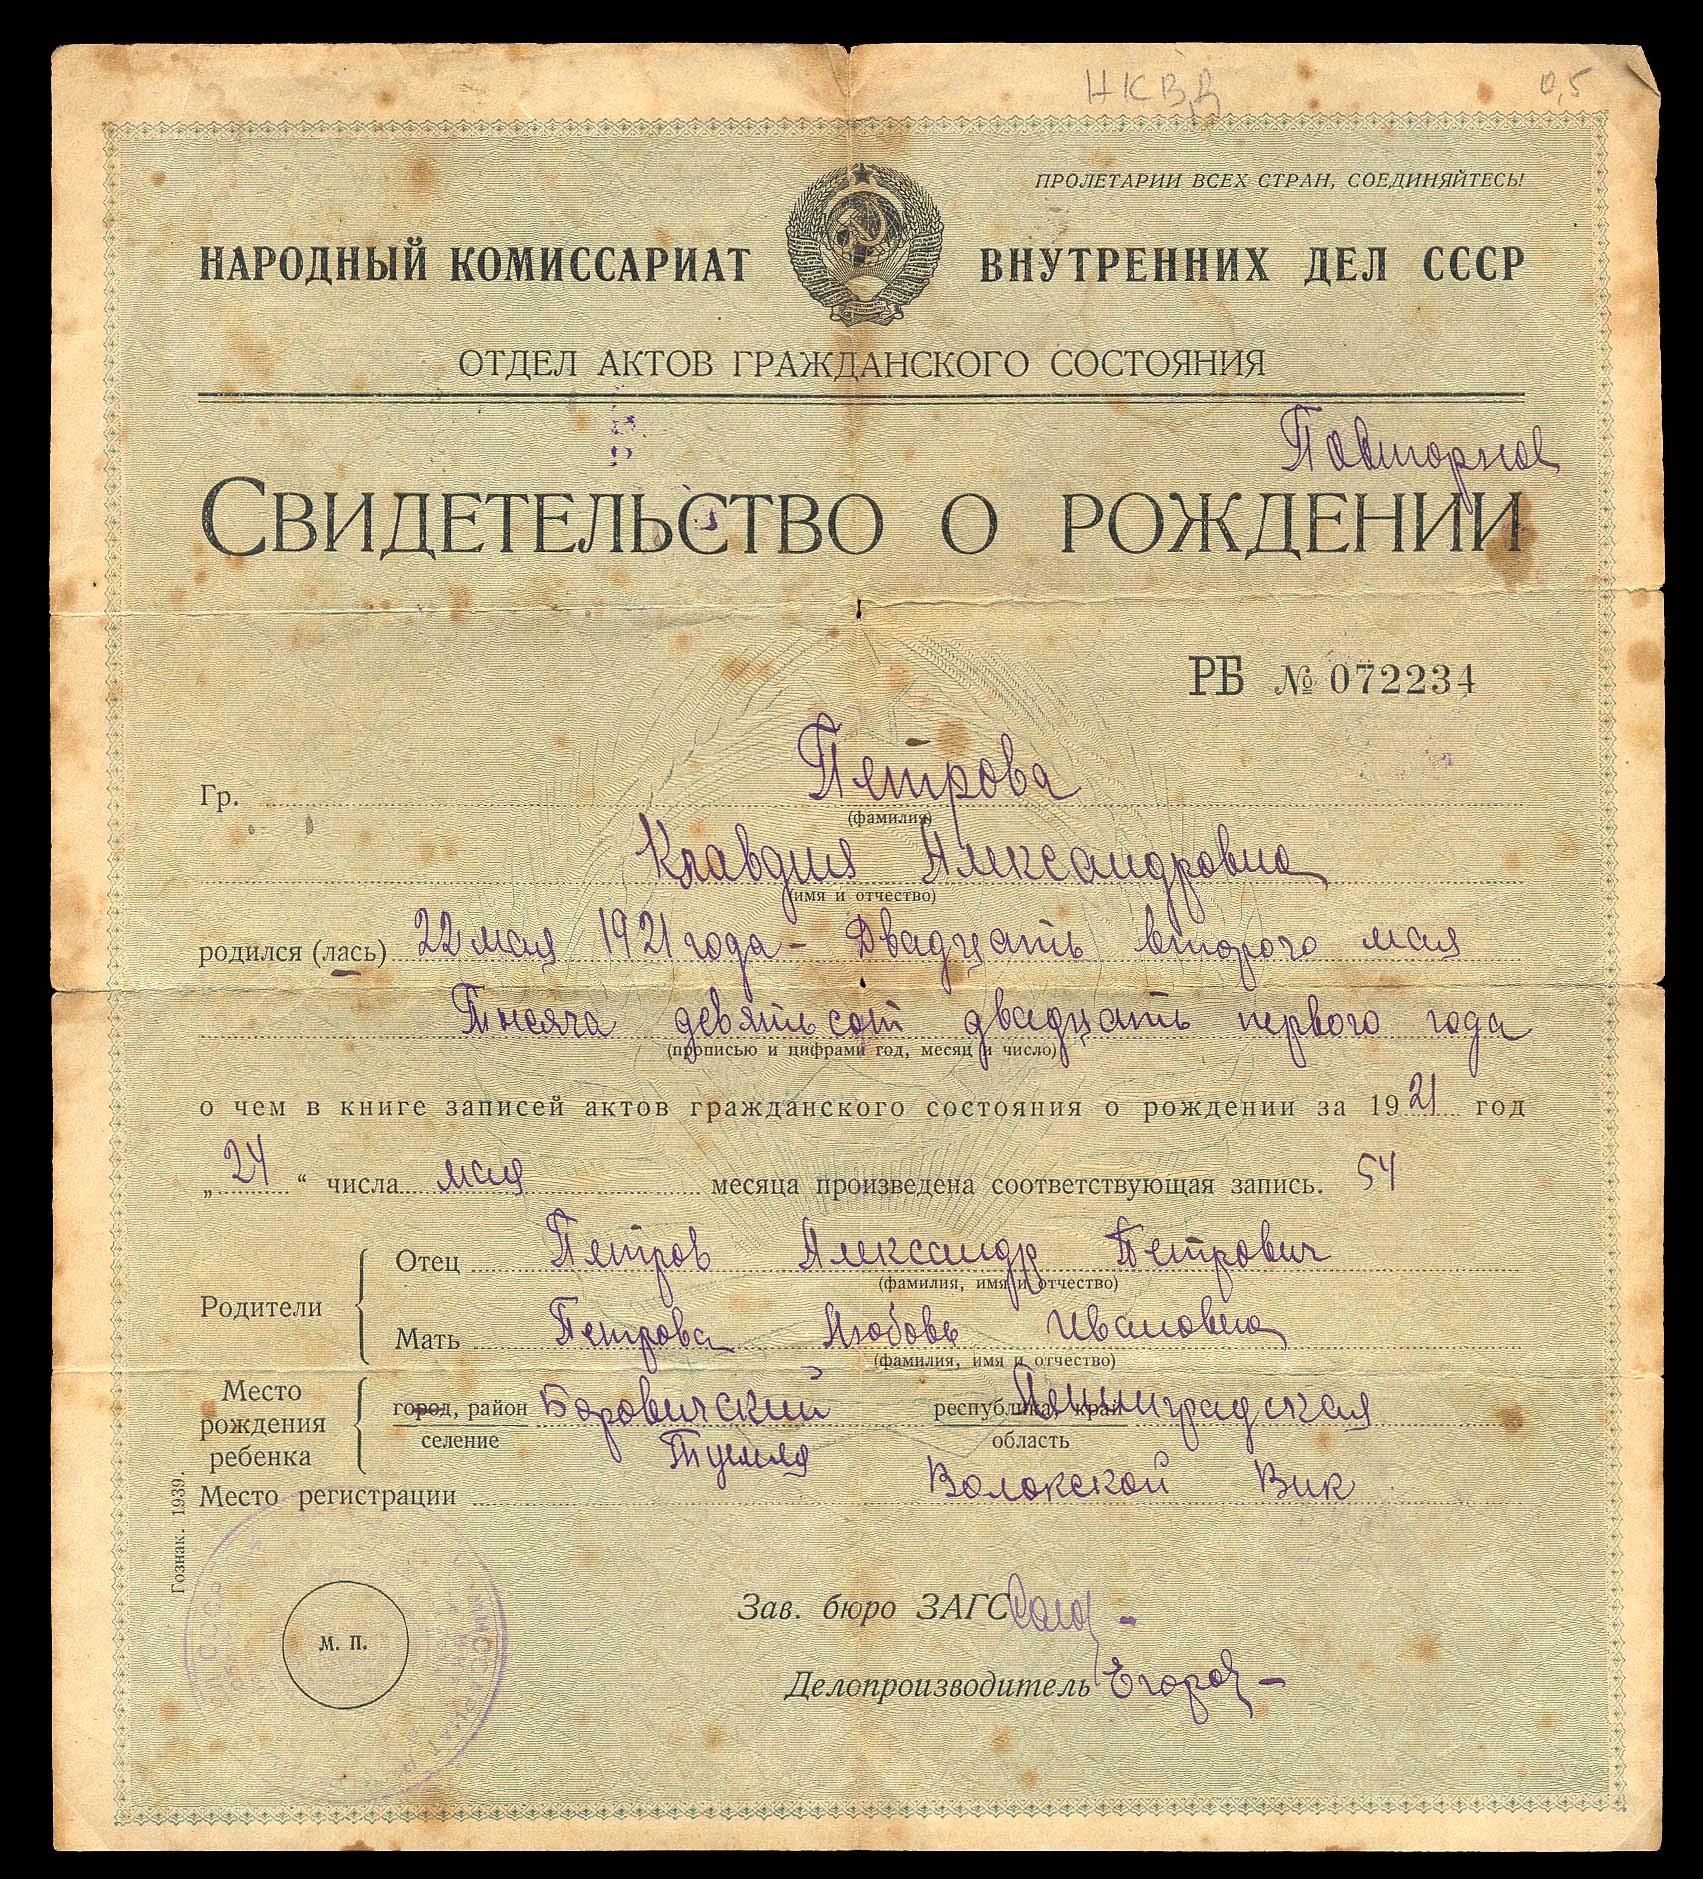 НКВД
0,5
ПРОЛЕТАРИИ ВСЕХ СТРАН, СОЕДИНЯЙТЕСЬ!
НАРОДНЫЙ КОМИССАРИАТ ВНУТРЕННИХ ДЕЛ СССР
ОТДЕЛ АКТОВ ГРАЖДАНСКОГО СОСТОЯНИЯ
Повторное
СВИДЕТЕЛЬСТВО О РОЖДЕНИИ
РБ № 072234
Гр. Петрова
(фамилия)
Клавдия Александровна
(имя и отчество)
родился (лась) 22 мая 1921 года – Двадцать второго мая
Тысяча девятьсот двадцать первого года
(прописью и цифрами год, месяц и число)
о чем в книге записей актов гражданского состояния о рождении за 1921 год
„24“ числа мая месяца произведена соответствующая запись. 54
Родители
Отец Петров Александр Петрович
(фамилия, имя и отчество)
Мать Петрова Любовь Ивановна
(фамилия, имя и отчество)
Место рождения ребенка
город, район Боровичский республика, край Ленинградская
селение область
Место регистрации Волокской Вик
Гознак. 1939.
М. П.
Зав. бюро ЗАГС
Делопроизводитель Егоров